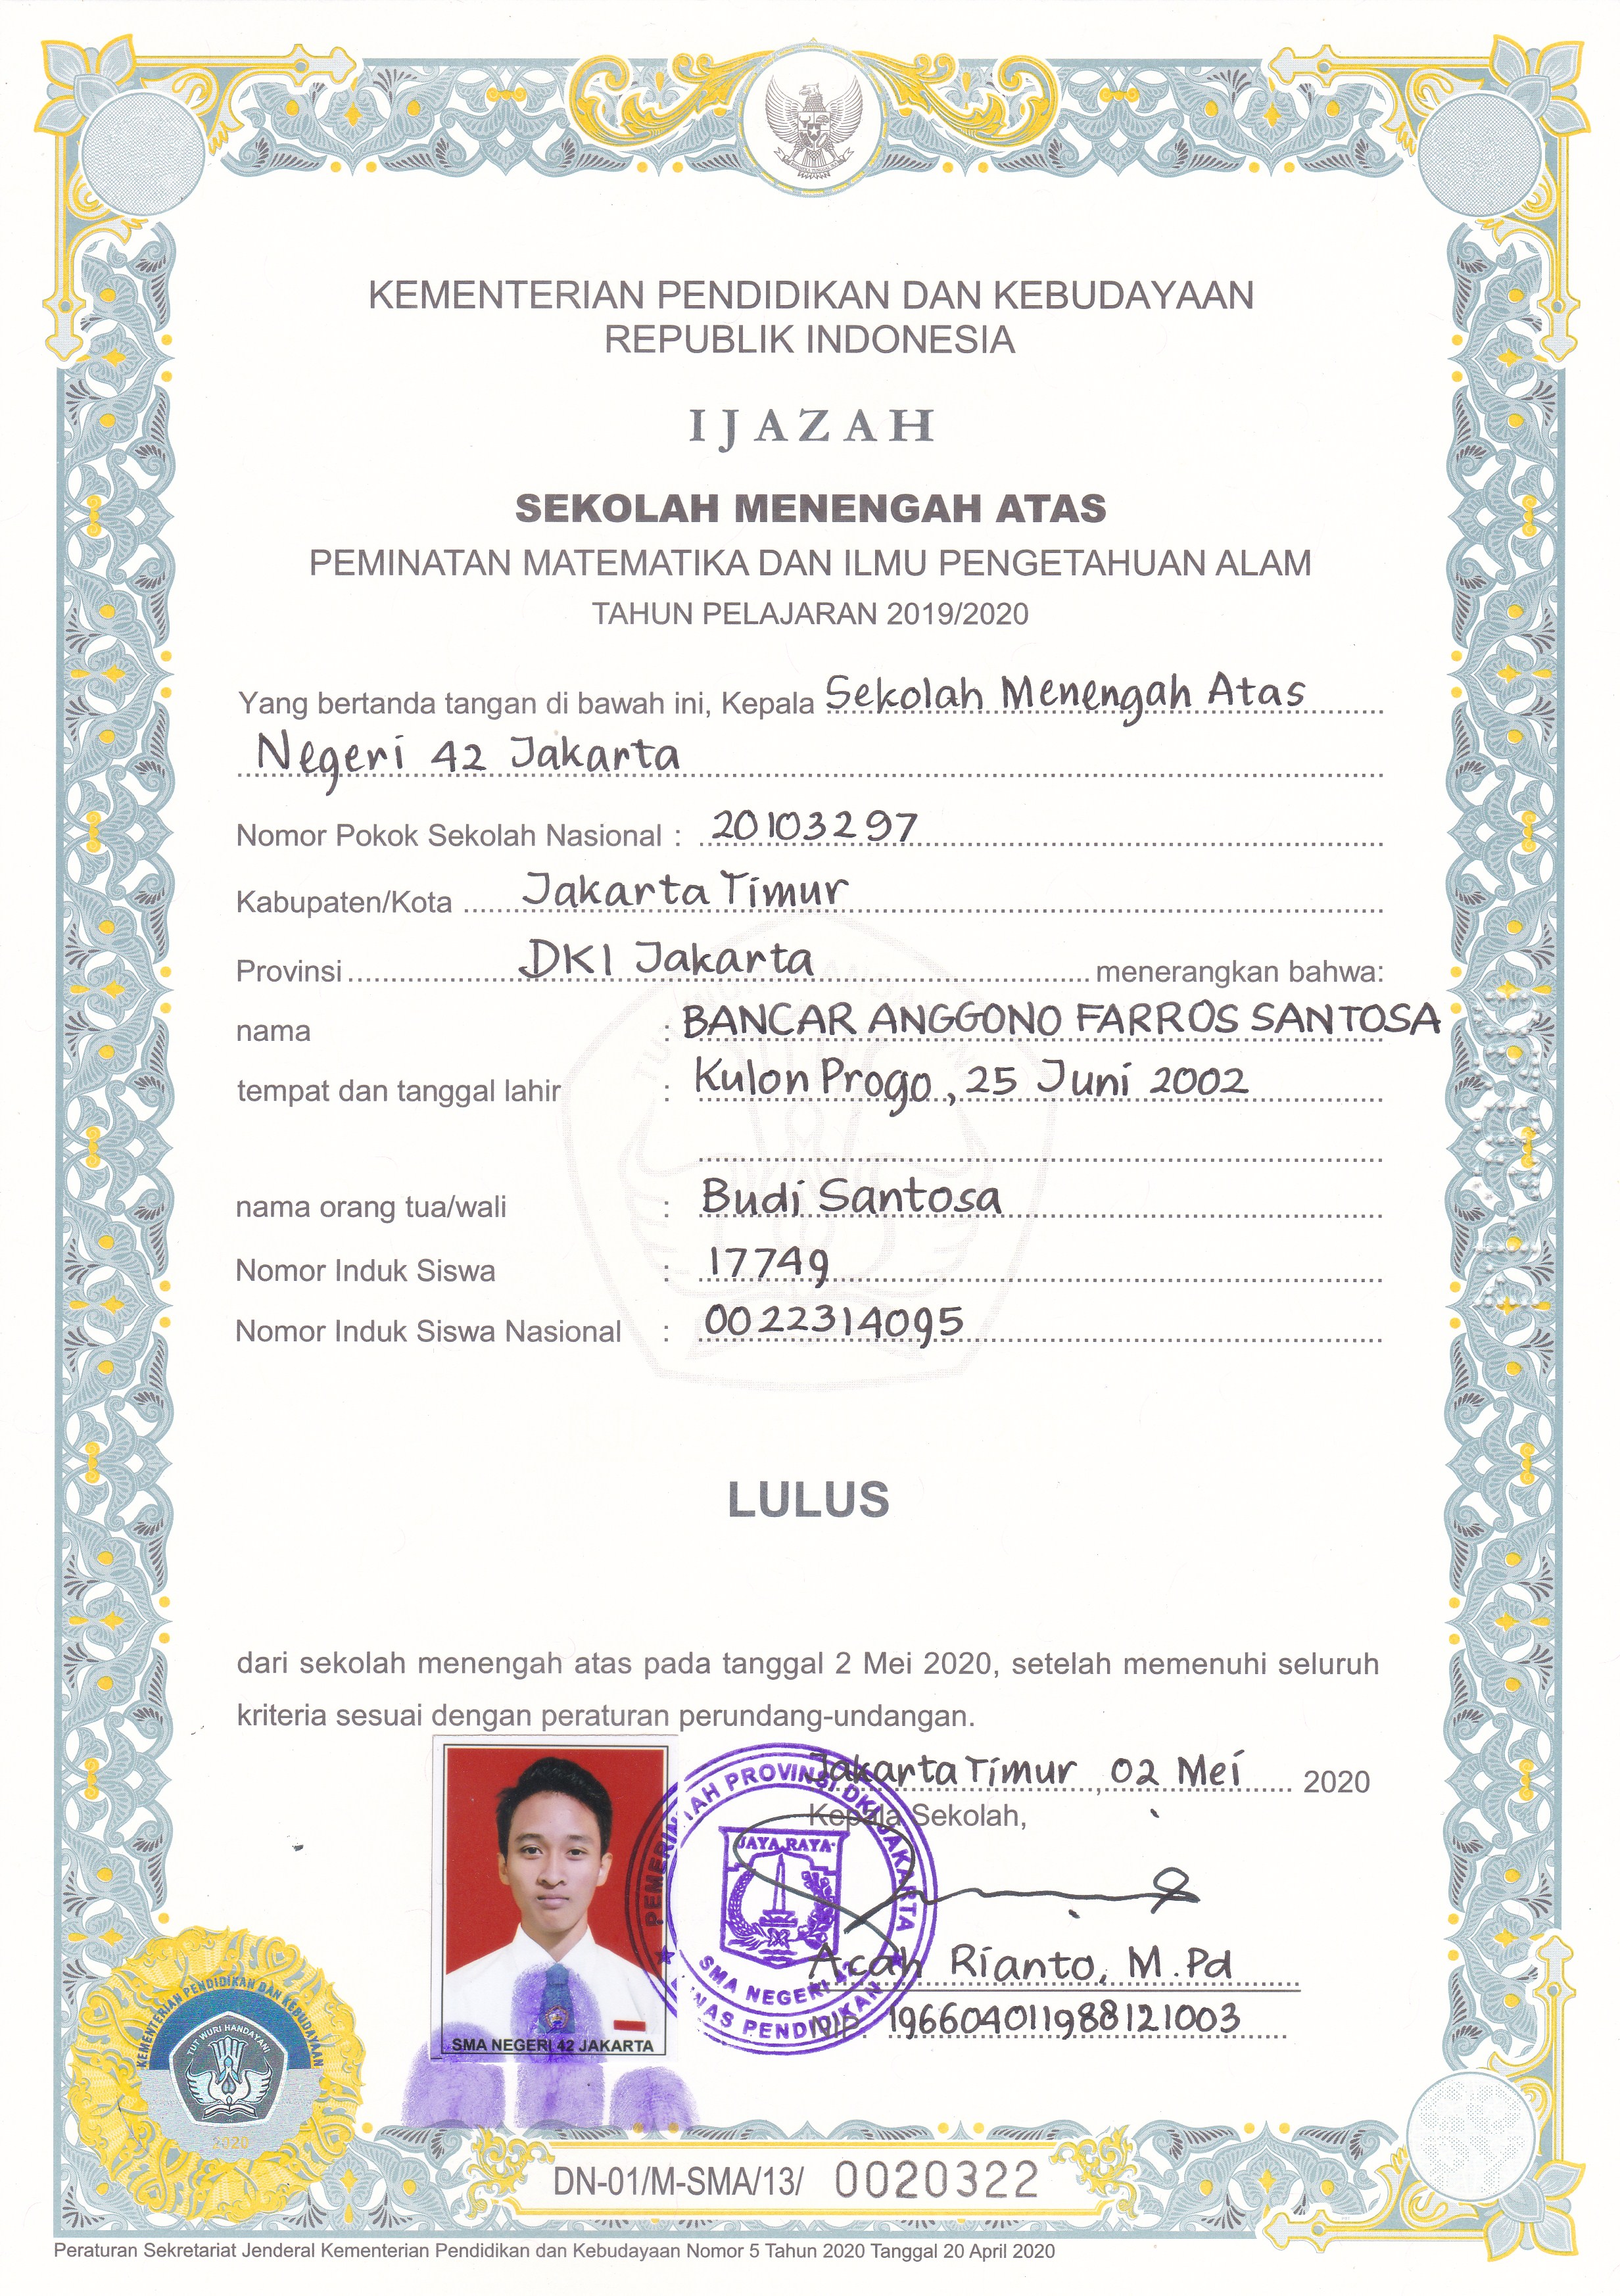 KEMENTERIAN PENDIDIKAN DAN KEBUDAYAAN
REPUBLIK INDONESIA
IJAZAH
SEKOLAH MENENGAH ATAS
PEMINATAN MATEMATIKA DAN ILMU PENGETAHUAN ALAM
TAHUN PELAJARAN 2019/2020
Yang bertanda tangan di bawah ini, Kepala Sekolah Menengah Atas
Negeri 42 Jakarta
Nomor Pokok Sekolah Nasional : 20103297
Kabupaten/Kota Jakarta Timur
Provinsi DKI Jakarta menerangkan bahwa:
nama : BANCAR ANGGONO FARROS SANTOSA
tempat dan tanggal lahir : Kulon Progo, 25 Juni 2002
nama orang tua/wali : Budi Santosa
Nomor Induk Siswa : 17749
Nomor Induk Siswa Nasional : 0022314095
LULUS
dari sekolah menengah atas pada tanggal 2 Mei 2020, setelah memenuhi seluruh
kriteria sesuai dengan peraturan perundang-undangan.
Jakarta Timur, 02 Mei 2020
Kepala Sekolah,
PEMERINTAH PROVINSI DKI JAKARTA
JAYA RAYA
SMA NEGERI 42
DINAS PENDIDIKAN
Acah Rianto, M.Pd
NIP. 196604011988121003
SMA NEGERI 42 JAKARTA
KEMENTERIAN PENDIDIKAN DAN KEBUDAYAAN
TUT WURI HANDAYANI
2020
DN-01/M-SMA/13/ 0020322
Peraturan Sekretariat Jenderal Kementerian Pendidikan dan Kebudayaan Nomor 5 Tahun 2020 Tanggal 20 April 2020